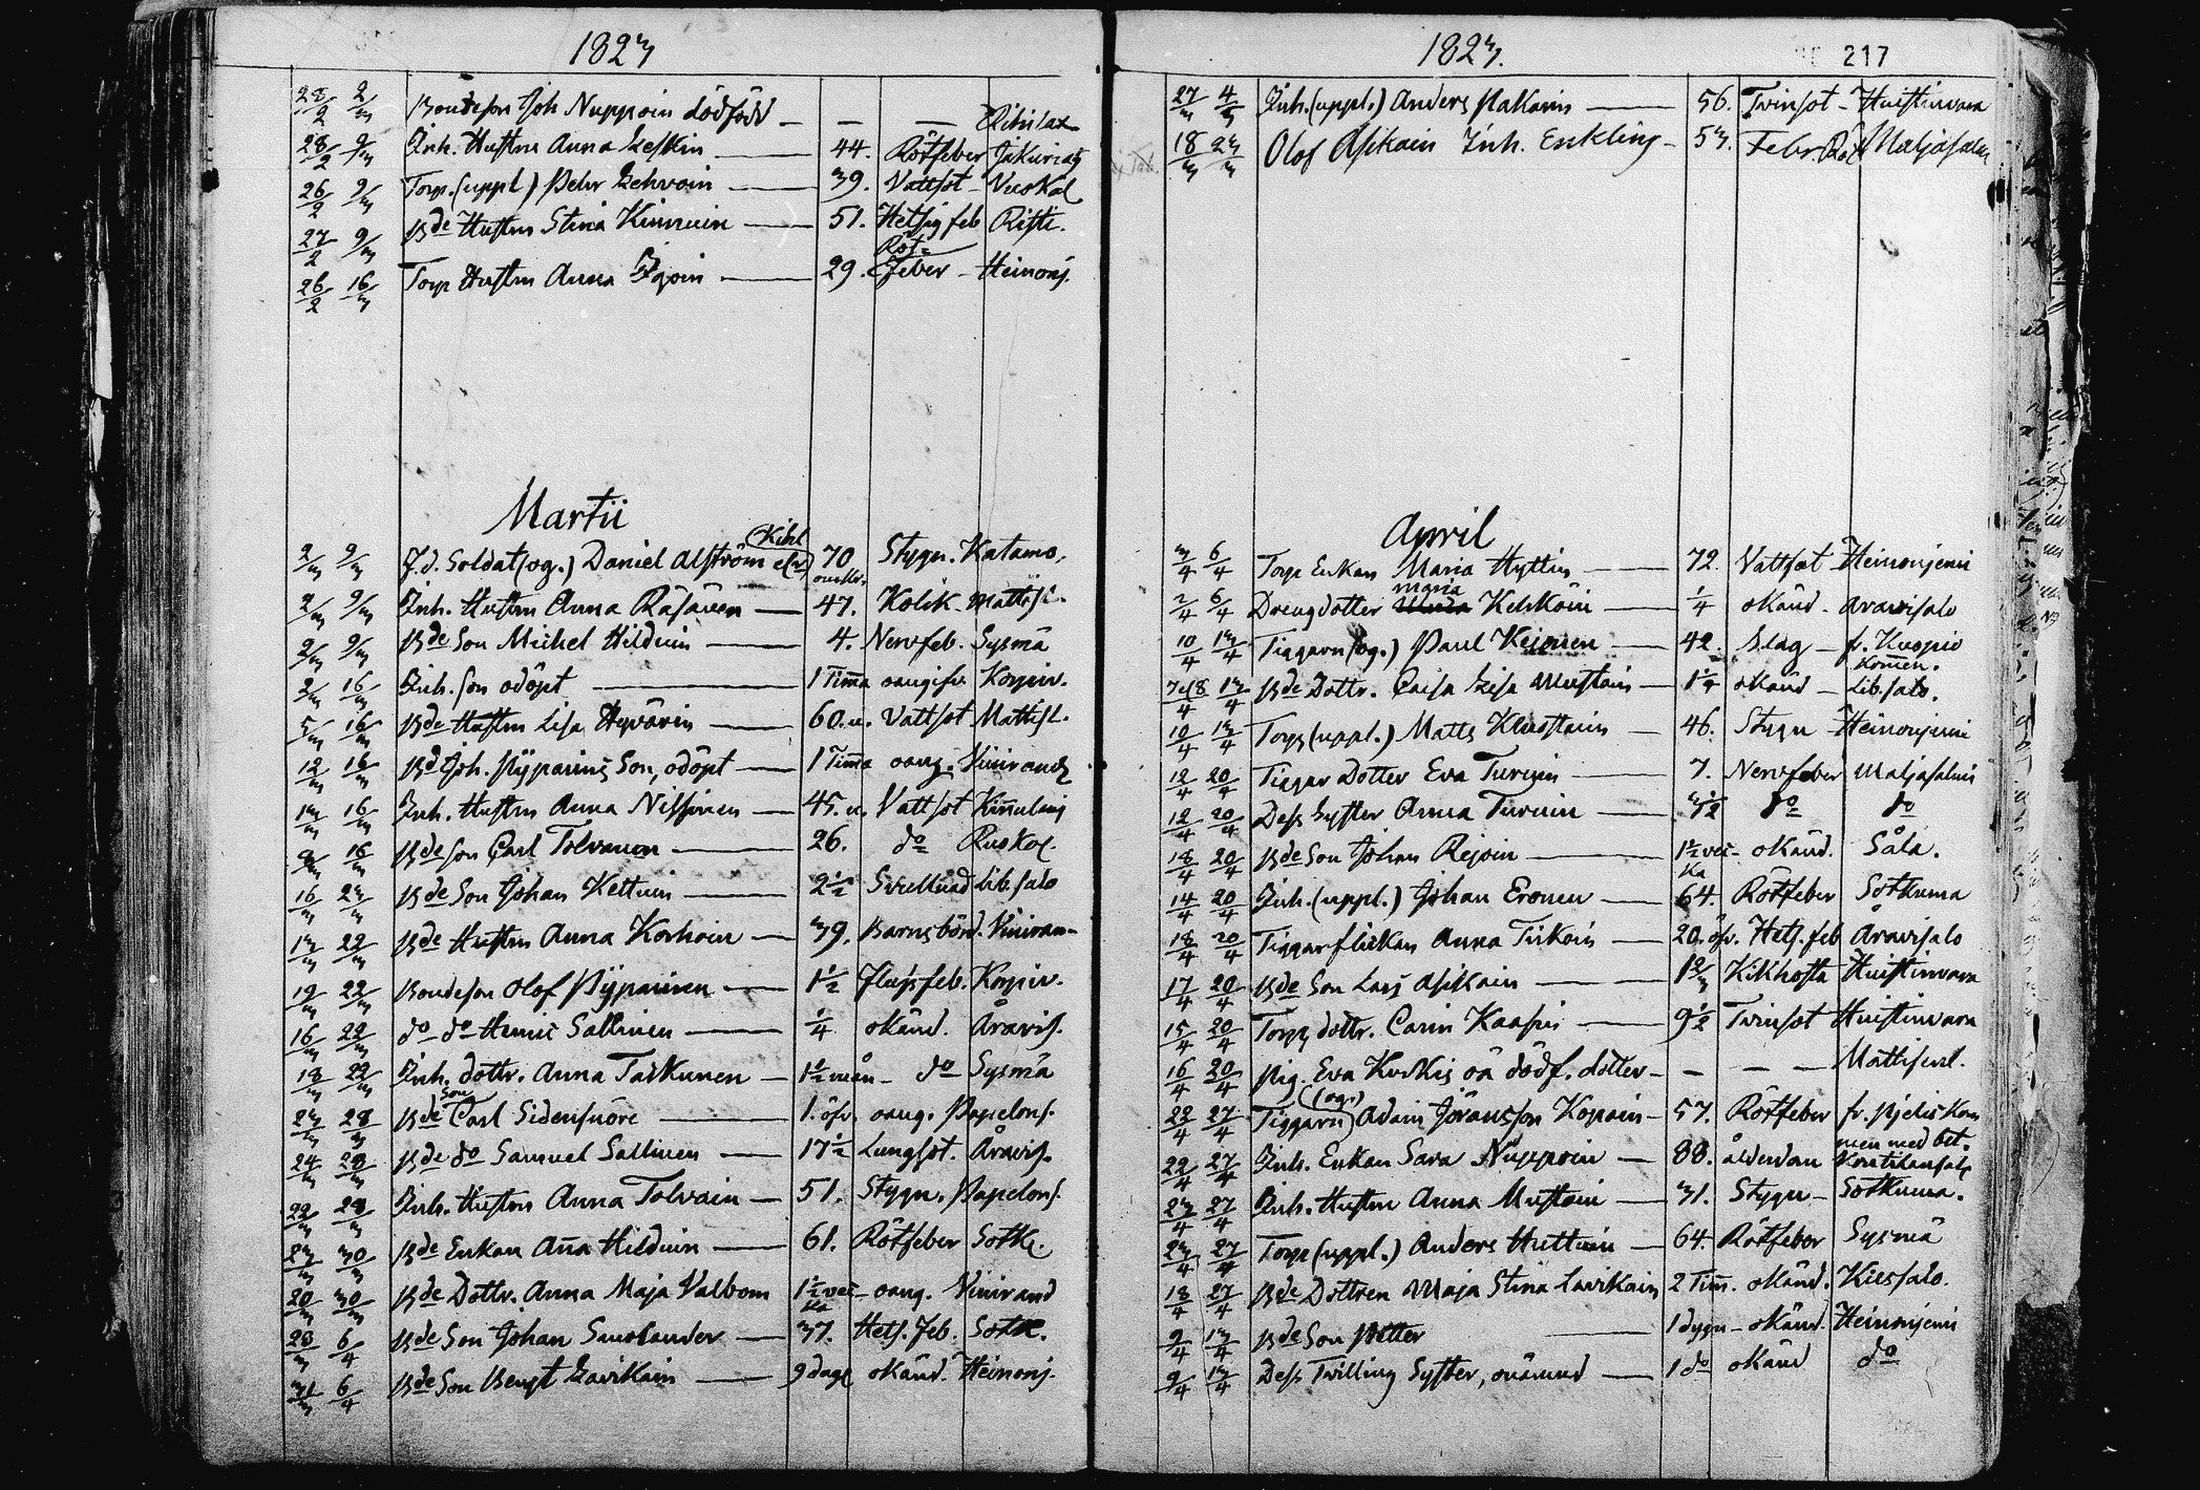 1823
28/2 2/3 Bondeson Joh Nuppoin dödfödd — — — Riihilax
28/2 9/3 Inh. Hustru Anna Leskin — 44. Rötfeber Jakuriag
26/2 9/3 Torp. (uppl) Pehr Lehvoin — 39. Vattsot — Vuokal
27/2 9/3 Bde Hustru Stina Kinnuin — 51. Hetsig feb Risti.
26/2 16/3 Torp Hustru Anna Igoin — 29. Röt= feber — Heinonj.
Martii
2/3 9/3 F.d. Soldat (og.) Daniel Alström el. Kihl 70 Stygn. Katamo.
2/3 9/3 Inh. Hustru Anna Räsänen — 47. Kolik. Mattisl.
2/3 9/3 Bde Son Michel Hilduin — 4. Nervfeb. Sysmä
2/3 16/3 Inh. son odöpt — 1 Timma oangifv. Korpiv.
5/3 16/3 Bde Hustru Lisa Hyvärin — 60. u. Vattsot Mattisl.
12/3 16/3 Bd Joh. Pyÿpainens Son, odöpt — 1 Timma oang. Viinirand
13/3 16/3 Inh. Hustru Anna Nissinen — 45. u. Vattsot Kinnulanj
16/3 Bde son Carl Tolvanen — 26. do Ruokol.
16/3 23/3 Bde Son Johan Kettuin — 2 1/2 Svullnad Lib. salo
13/3 22/3 Bde Hustru Anna Korhoin — 39. Barnsbörd. Viiniran-
19/3 22/3 Bondeson Olof Pÿÿpainen — 1 1/2 Flussfeb. Korpiv.
16/3 22/3 do do Henric Sallinen — 1/4 okänd. Åravis.
18/3 22/3 Inh. dottr. Anna Taskunen — 1 1/2 mån — do Sysmä
23/3 28/3 Bde Son Carl Sidensnöre — 1. öfv. oang. Papelons.
24/3 28/3 Bde do Samuel Sallinen — 17 1/2 Lungsot. Åravis.
22/3 28/3 Inh. Hustru Anna Tolvain — 51. Stygn. Papelons.
23/3 30/3 Bde Enkan Aña Hilduin — 61. Rötfeber Sotk.
20/3 30/3 Bde Dottr. Anna Maja Valbom 1 1/2 vec- ka oang. Viinirand
23/3 6/4 Bde Son Johan Smolander — 37. Hets. feb. Sotk.
31/3 6/4 Bde Son Bengt Lavikain — 9 dagr okänd. Heinonj.
1823. 217
27/3 4/3 Inh. (uppl.) Anders Pakarin — 56. Tvinsot — Huistinvara
18/3 23/3 Olof Asikain Inh. Enkling — 53. Feber Röt Maljasalm
April
3/4 6/4 Torp Enkan Maria Hyttin — 72. Vattsot Heinonjemi
2/4 6/4 Drengdotter Maria Kekkoin — 1/4 okänd. Aravisalo
10/4 13/4 Tiggarn (og.) Paul Keionen — 42. Slag — fr. Kuopio kommen.
7 el 8/4 13/4 Bde Dottr. Caisa Lisa Mustoin — 1 1/4 okänd — Lib. salo.
10/4 13/4 Torp (uppl.) Matts Klusttain — 46. Stygn Heinonjemi
12/4 20/4 Tiggar Dotter Eva Turuin — 7. Nervfeber Maljasalmi
12/4 20/4 Dess Syster Anna Turuin — 3 1/2 do do
18/4 20/4 Bde Son Johan Rejoin — 1 1/2 vec- ka okänd. Såla.
14/4 20/4 Inh. (uppl.) Johan Eronen — 64. Rötfeber Sotkuma
18/4 20/4 Tiggarflickan Anna Tirkoin — 20. öfv. Hets. feb Aravisalo
17/4 20/4 Bde Son Lars Asikain — 1 2/3 Kikhosta Huistinvara
15/4 20/4 Torp dottr. Carin Kaasin — 9 1/2 Tvinsot Huistinvara
16/4 20/4 Pig. Eva Kuckis oä dödf. dotter — — — Mattisenl.
22/4 27/4 Tiggarn (og.) Adam Göransson Kopoin — 57. Rötfeber fr. Pjelis kom
22/4 27/4 Inh. Enkan Sara Nuppoin — 88. ålderdom men med bet. Kontilansalo
23/4 27/4 Inh. Hustru Anna Mustoin — 31. Stygn — Sotkuma.
23/4 27/4 Torp (uppl.) Anders Huttuin — 64. Rötfeber Sysmä
18/4 27/4 Bde Dottren Maja Stina Lavikain 2 Tim. okänd. Kiessalo.
9/4 13/4 Bde Son Petter — 1 dygn — okänd. Heinonjemi
9/4 13/4 Dess Tvilling Syster, onämnd — 1 do okänd do